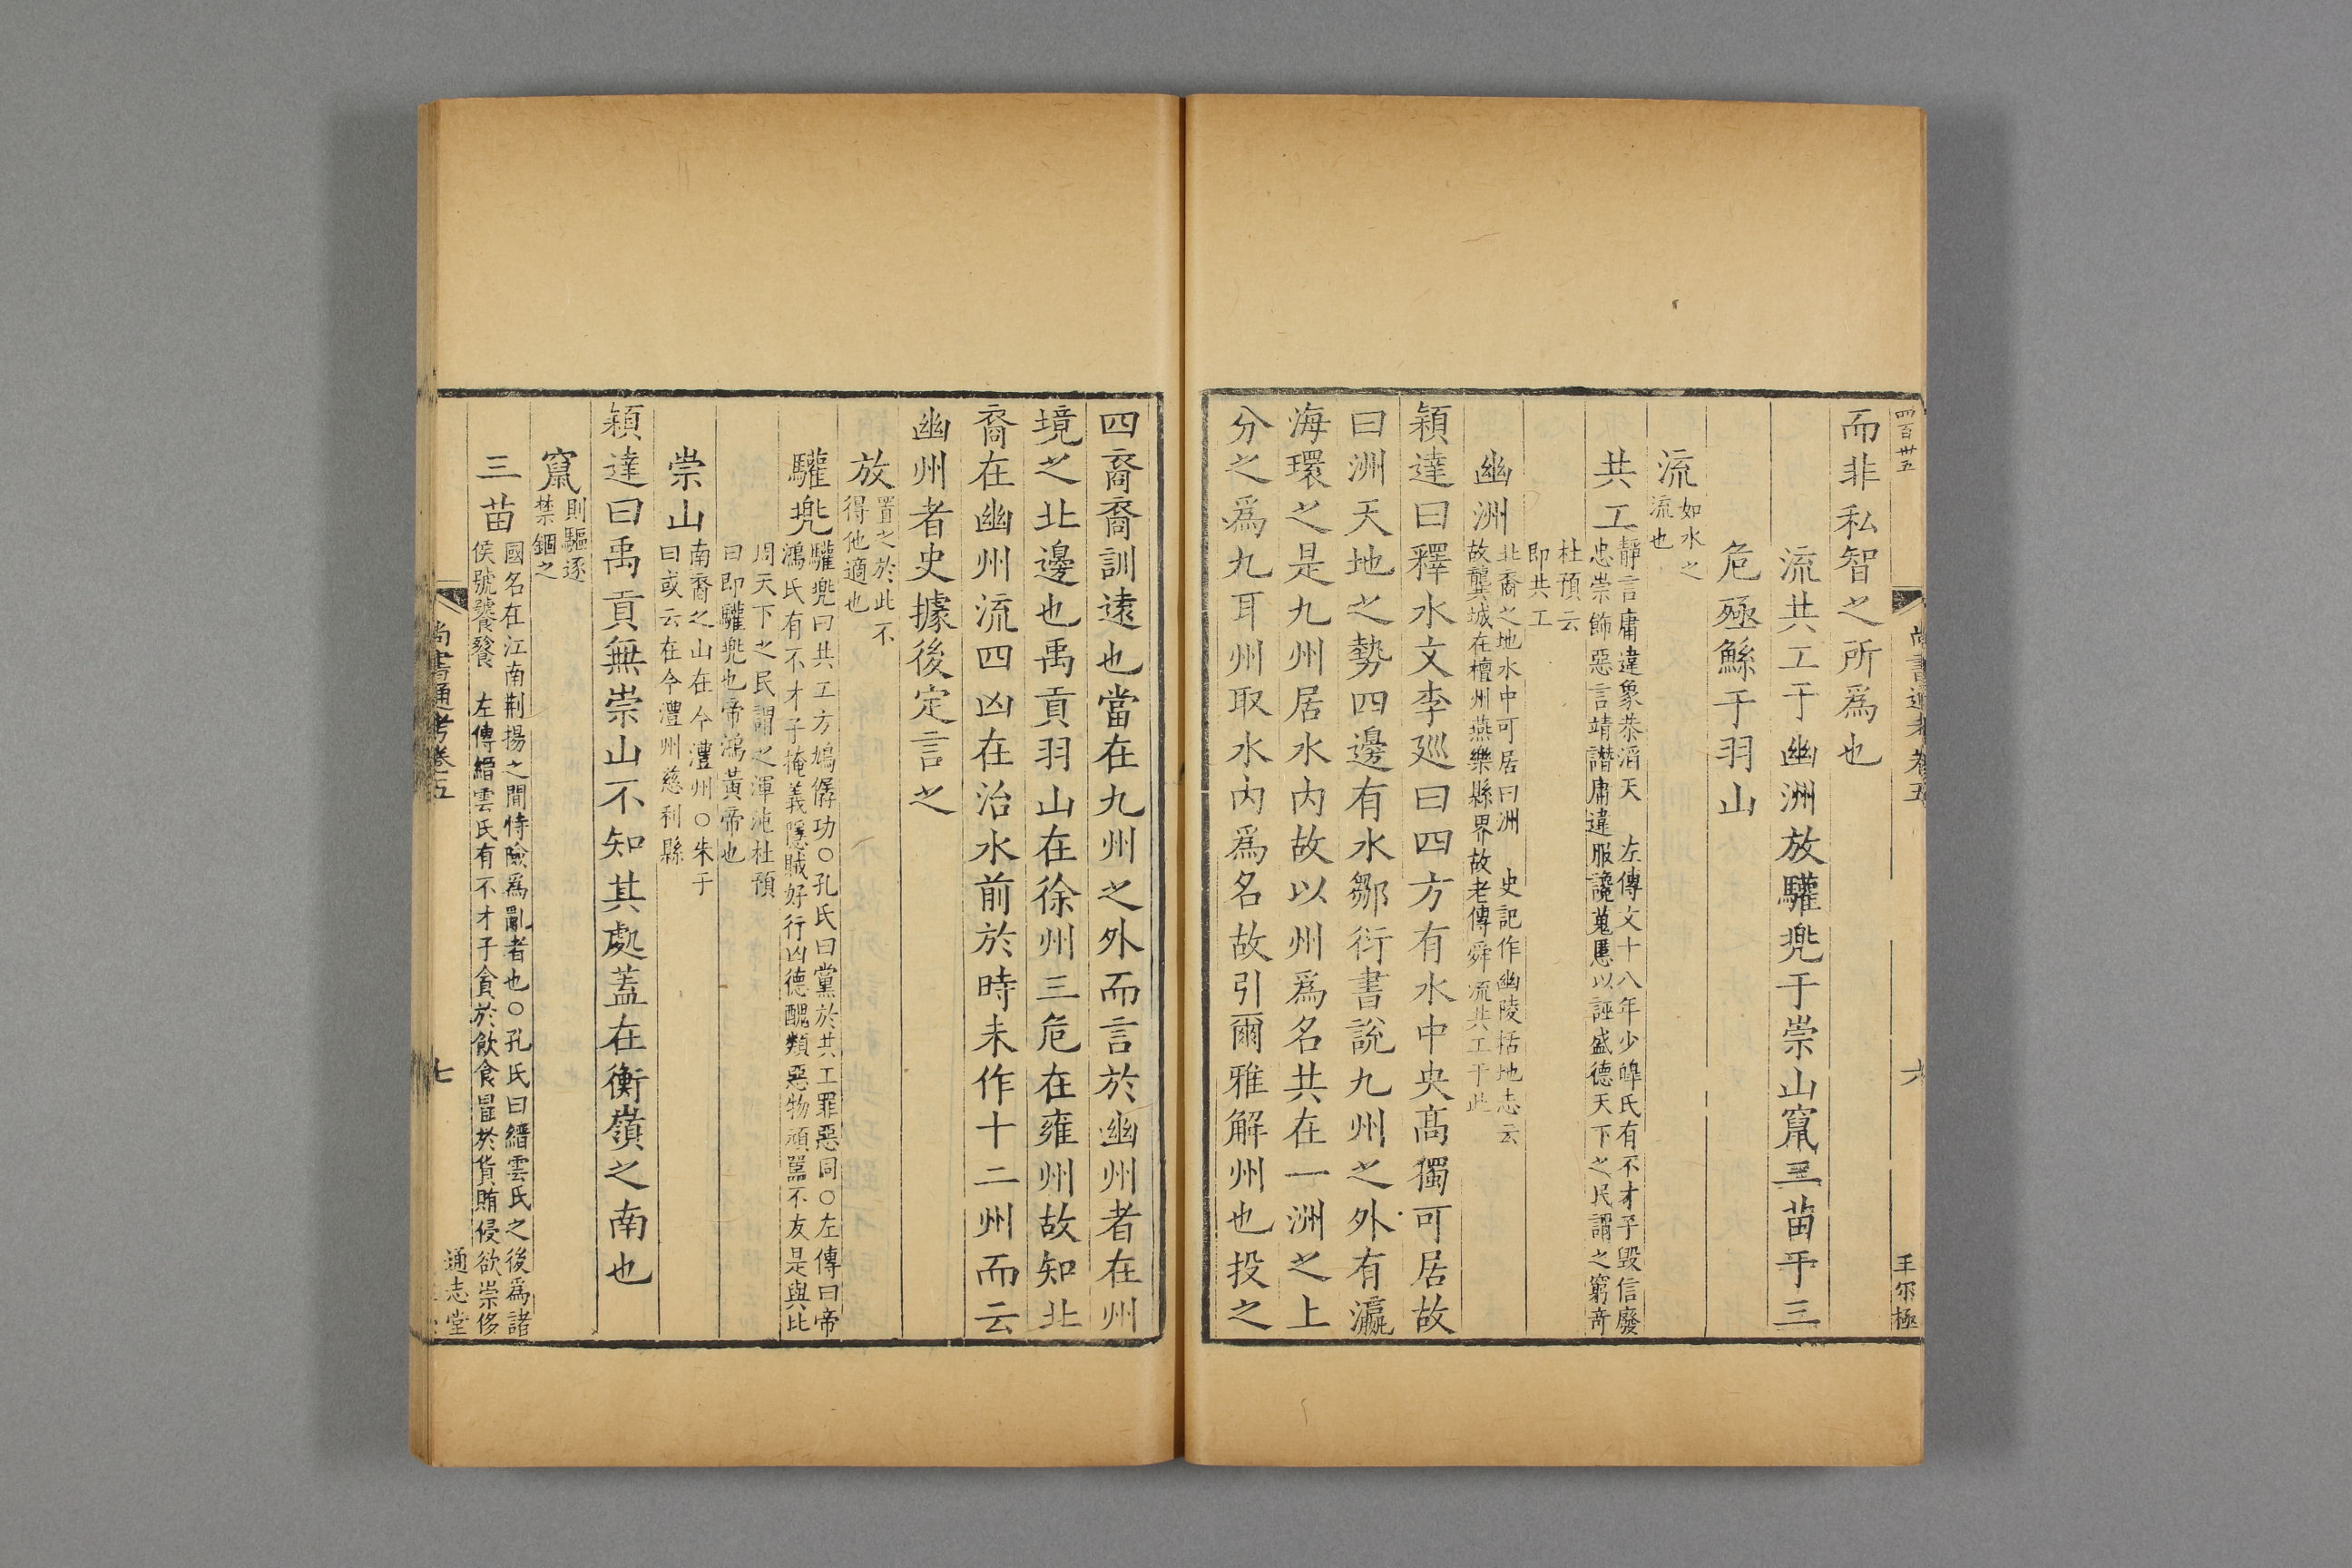 四百卅五
尚書通考卷五
六
王尔極
而非私智之所爲也
流共工于幽洲放驩兜于崇山竄三苗于三
危殛鯀于羽山
流如水之
流也
共工靜言庸違象恭滔天 左傳文十八年少皥氏有不才子毀信廢
忠崇飾惡言靖譖庸違服讒蒐慝以誣盛德天下之民謂之窮奇
杜預云
即共工
幽洲北裔之地水中可居曰洲 史記作幽陵括地志云
故龔城在檀州燕樂縣界故老傳舜流共工于此
穎達曰釋水文李巡曰四方有水中央髙獨可居故
曰洲天地之勢四邊有水鄒衍書說九州之外有瀛
海環之是九州居水內故以州爲名共在一洲之上
分之爲九耳州取水內爲名故引爾雅解州也投之
四裔裔訓遠也當在九州之外而言於幽州者在州
境之北邊也禹貢羽山在徐州三危在雍州故知北
裔在幽州流四凶在治水前於時未作十二州而云
幽州者史據後定言之
放置之於此不
得他適也
驩兜驩兜曰共工方鳩僝功○孔氏曰黨於共工罪惡同○左傳曰帝
鴻氏有不才子掩義隱賊好行凶德醜類惡物頑嚚不友是與比
周天下之民謂之渾沌杜預
曰即驩兜也帝鴻黃帝也
崇山南裔之山在今澧州○朱子
曰或云在今澧州慈利縣
穎達曰禹貢無崇山不知其處蓋在衡嶺之南也
竄則驅逐
禁錮之
三苗國名在江南荆揚之間恃險爲亂者也○孔氏曰縉雲氏之後爲諸
侯號饕餮 左傳縉雲氏有不才子貪於飲食冒於貨賄侵欲崇侈
尚書通考卷五
七
通志堂